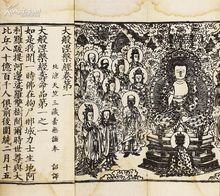 大般涅槃經卷第一
北涼天竺三藏曇無讖奉 詔譯
如是我聞一時佛在拘尸那城力士生地阿
利羅跋提河邊娑羅雙樹間爾時世尊與大
比丘八十億百千人俱前後圍繞二月十五